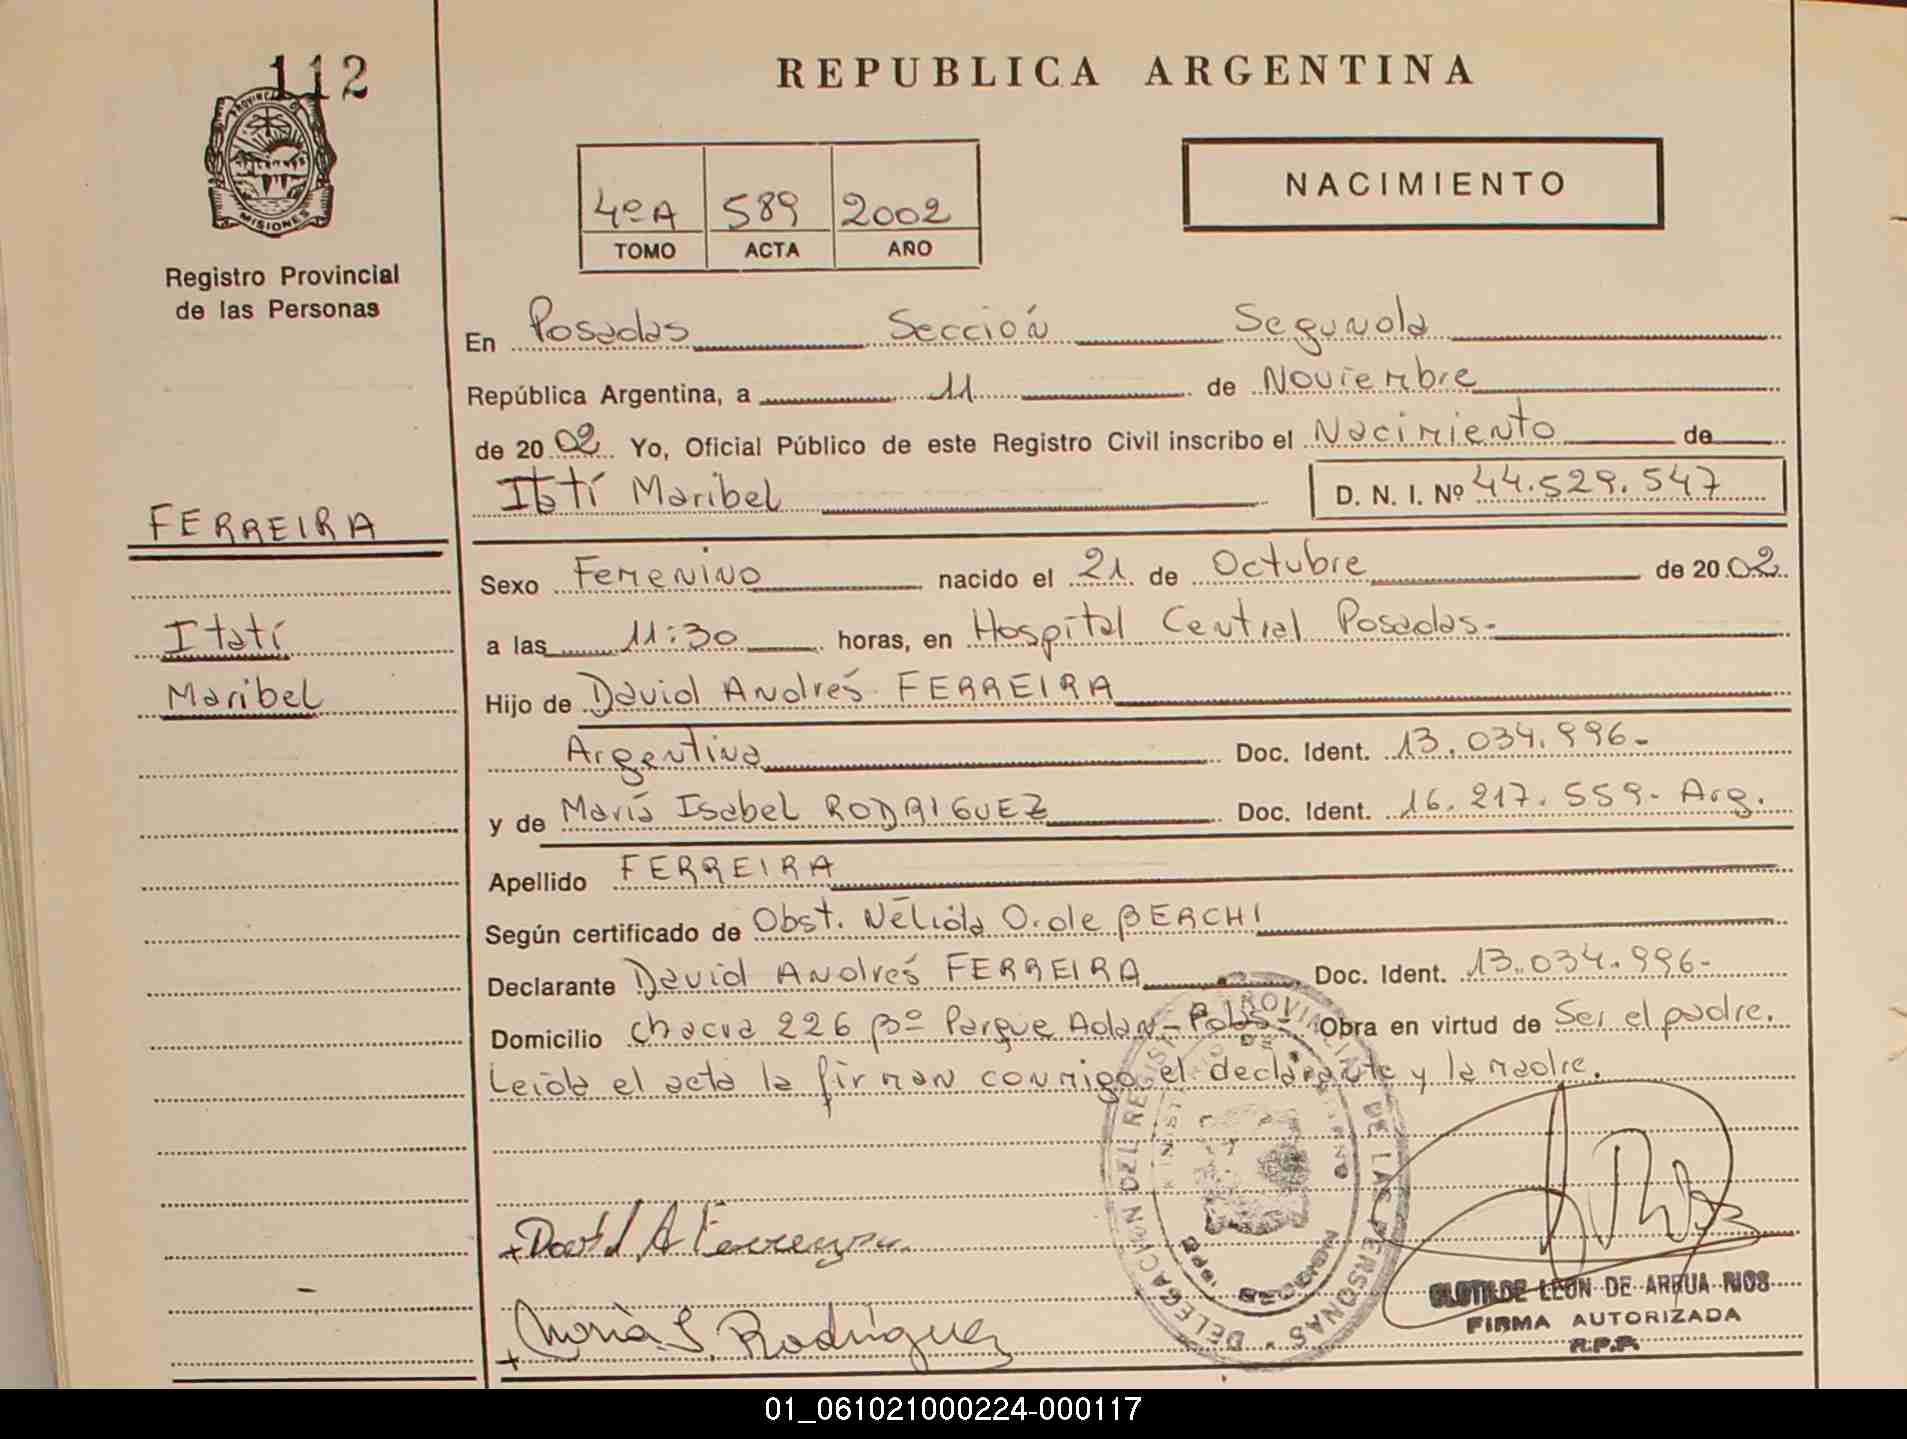 112
REPUBLICA ARGENTINA
PROVINCIA DE
MISIONES
Registro Provincial
de las Personas
4ºA 589 2002
TOMO ACTA AÑO
NACIMIENTO
En Posadas Sección Segunda
República Argentina, a 11 de Noviembre
de 2002 Yo, Oficial Público de este Registro Civil inscribo el Nacimiento de
Itatí Maribel D. N. I. Nº 44.529.547
FERREIRA
Itatí
Maribel
Sexo Femenino nacido el 21 de Octubre de 2002
a las 11:30 horas, en Hospital Central Posadas.
Hijo de David Andrés FERREIRA
Argentina Doc. Ident. 13.034.996-
y de María Isabel RODRIGUEZ Doc. Ident. 16.217.559- Arg.
Apellido FERREIRA
Según certificado de Obst. Nélida O. de BERCHI
Declarante David Andrés FERREIRA Doc. Ident. 13.034.996-
Domicilio Chacra 226 Bº Parque Adan- Pdas- Obra en virtud de Ser el padre.
Leída el acta la firman conmigo el declarante y la madre.
DELEGACION DEL REGISTRO PROVINCIAL DE LAS PERSONAS
David A Ferreyra
María I. Rodríguez
CLOTILDE LEON DE ARRUA RIOS
FIRMA AUTORIZADA
R.P.P.
01_061021000224-000117